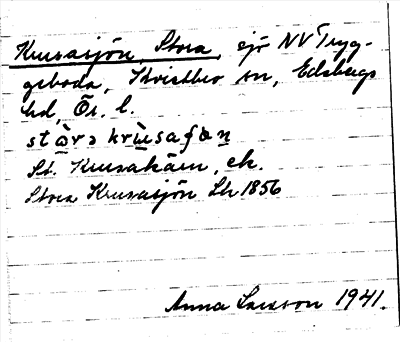 Krusasjön, Stora, sjö NV Trygg-
geboda, Kvistbro sn, Edsbergs
hd, Ör. l.
stòrə krùsaʃøn
St. Krusakärn, ek.
Stora Krusasjön Lk 1856
Anna Larsson 1941.